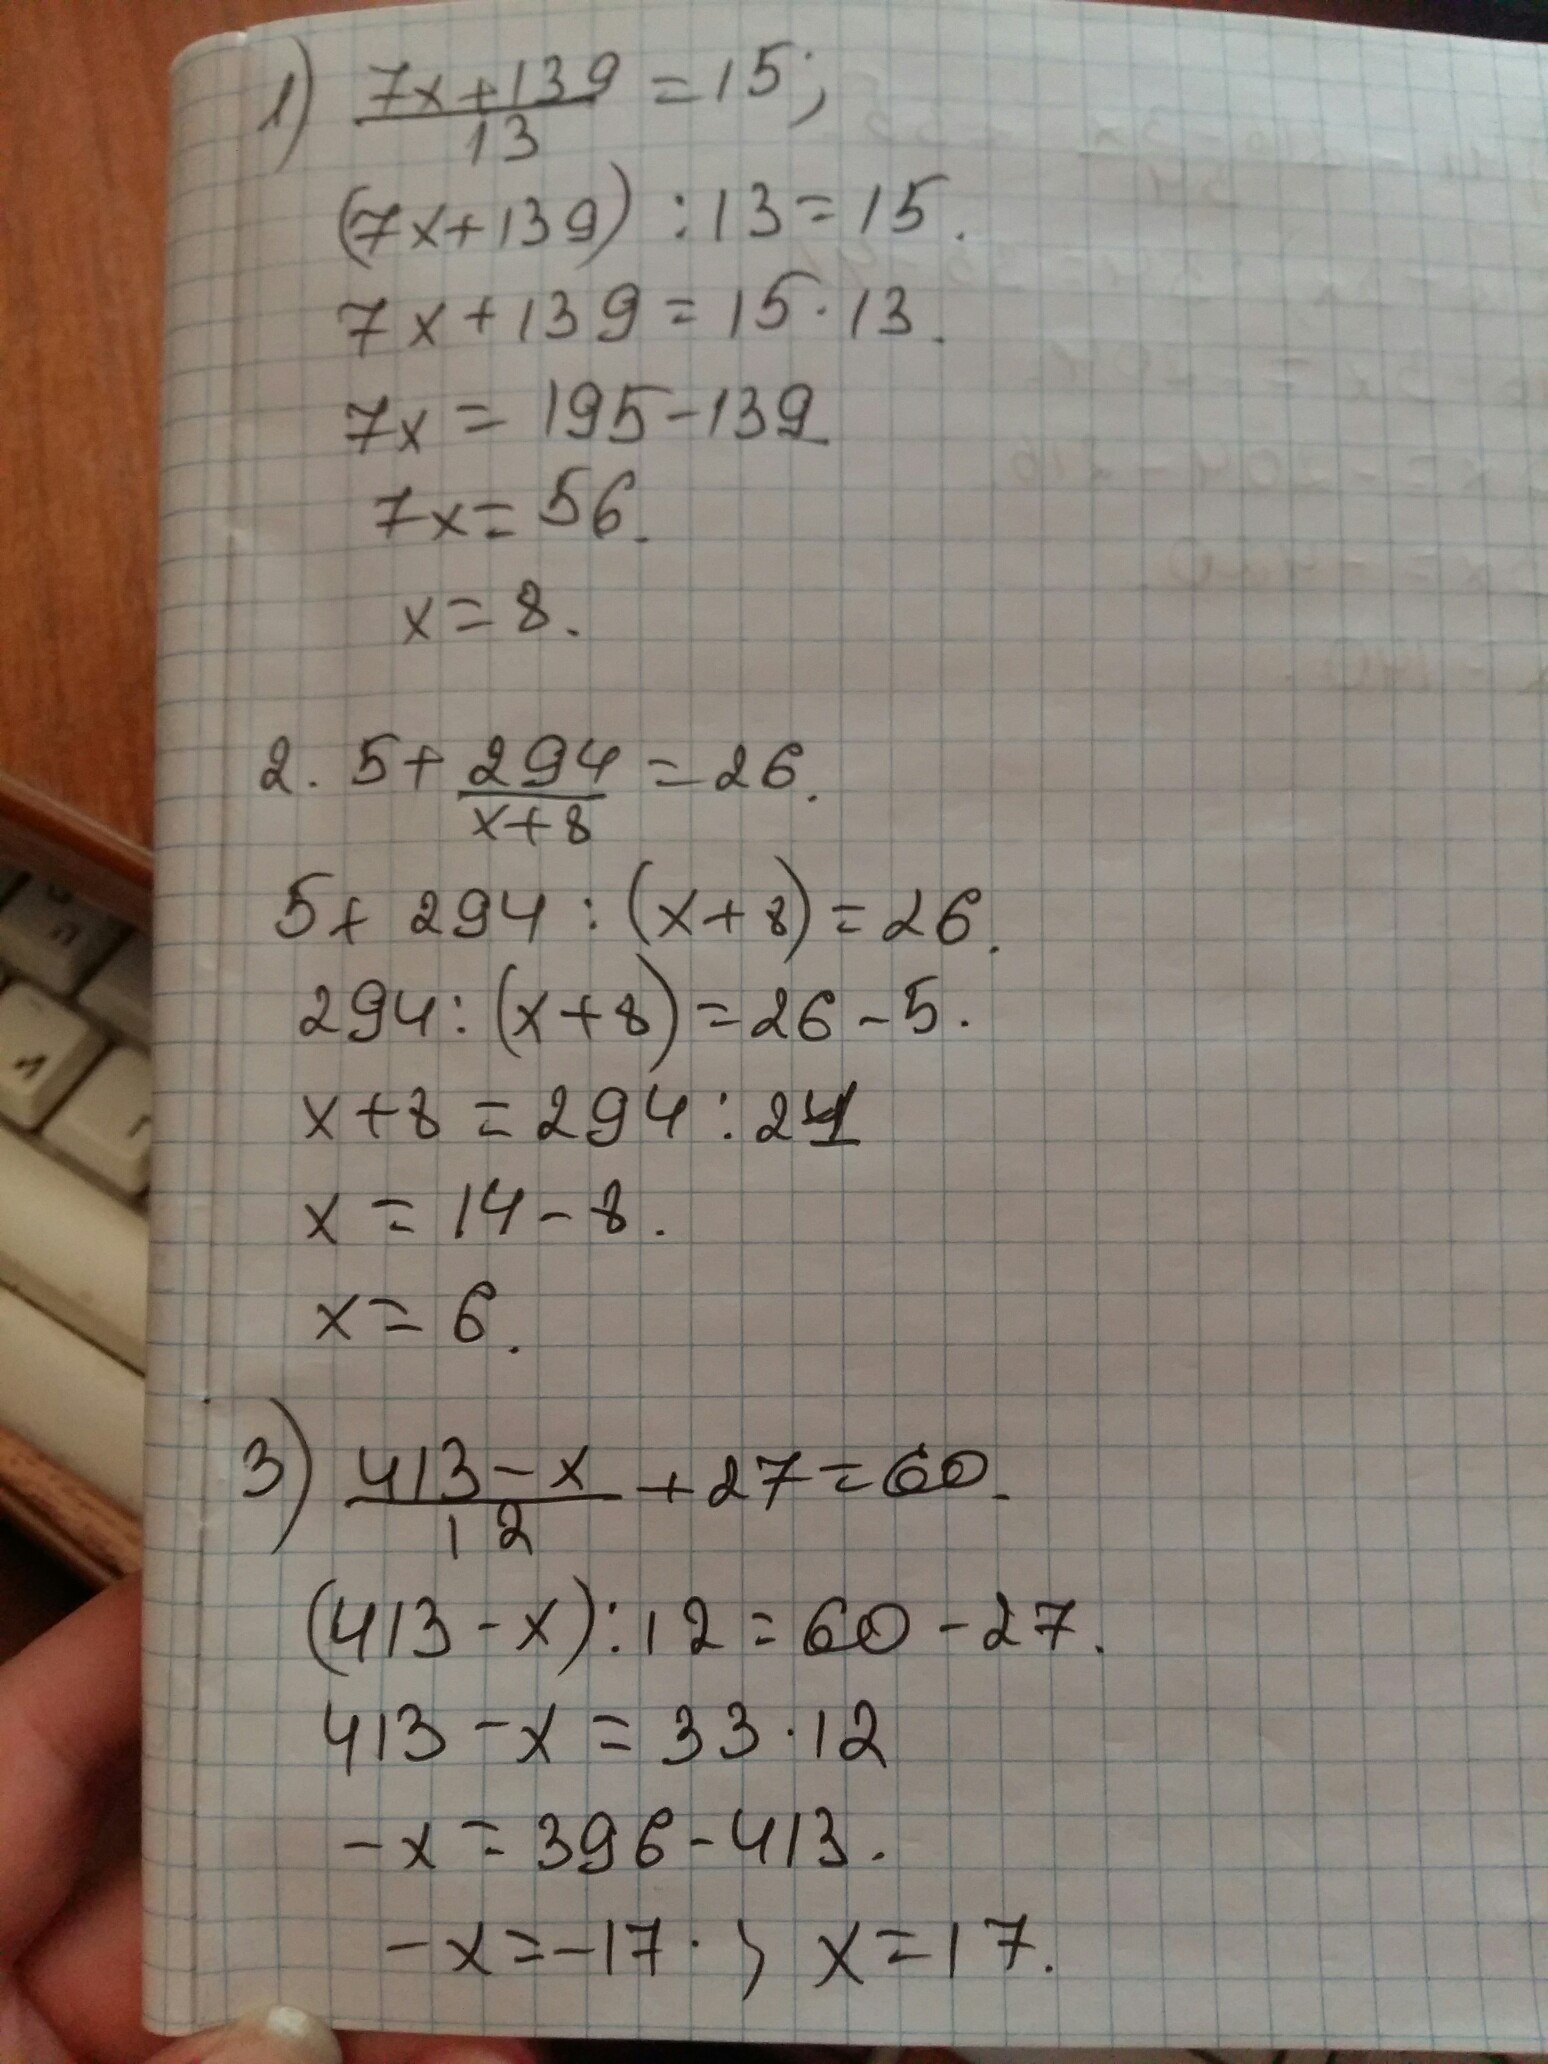 1) (7x+139)/13 = 15;
(7x+139) : 13 = 15.
7x+139 = 15·13.
7x = 195-139
7x = 56.
x = 8.
2. 5+ 294/(x+8) = 26.
5+ 294 : (x+8) = 26.
294 : (x+8) = 26 - 5.
x+8 = 294 : 21
x = 14 - 8.
x = 6.
3) (413-x)/12 + 27 = 60.
(413 - x) : 12 = 60 - 27.
413 - x = 33·12
-x = 396 - 413.
-x = -17. ; x = 17.